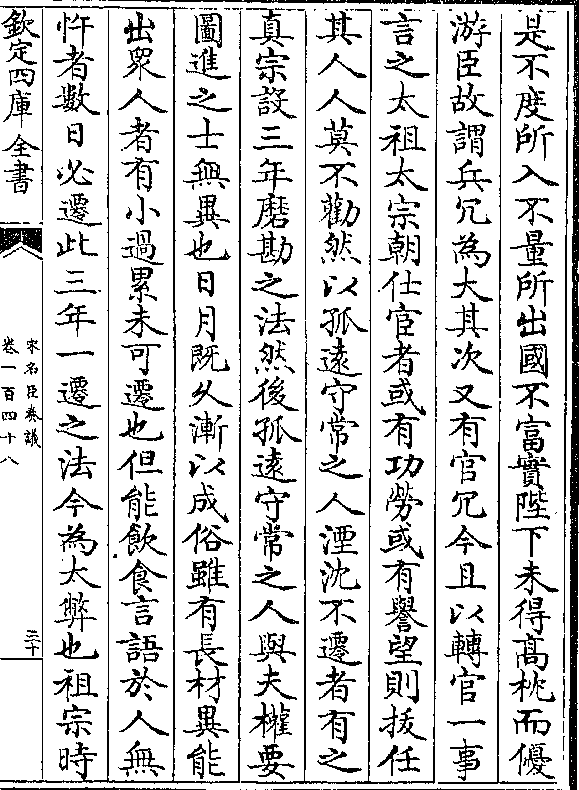 是不度所入不量所出國不富實陛下未得髙枕而優
游臣故謂兵冗為大其次又有官冗今且以轉官一事
言之太祖太宗朝仕宦者或有功勞或有譽望則拔任
其人人莫不勸然以孤遠守常之人湮沈不遷者有之
真宗設三年磨勘之法然後孤遠守常之人與夫權要
圖進之士無異也日月既久漸以成俗雖有長材異能
出衆人者有小過累未可遷也但能飲食言語於人無
忤者數日必遷此三年一遷之法今為太弊也祖宗時
欽定四庫全書
宋名臣奏議
卷一百四十八
三十